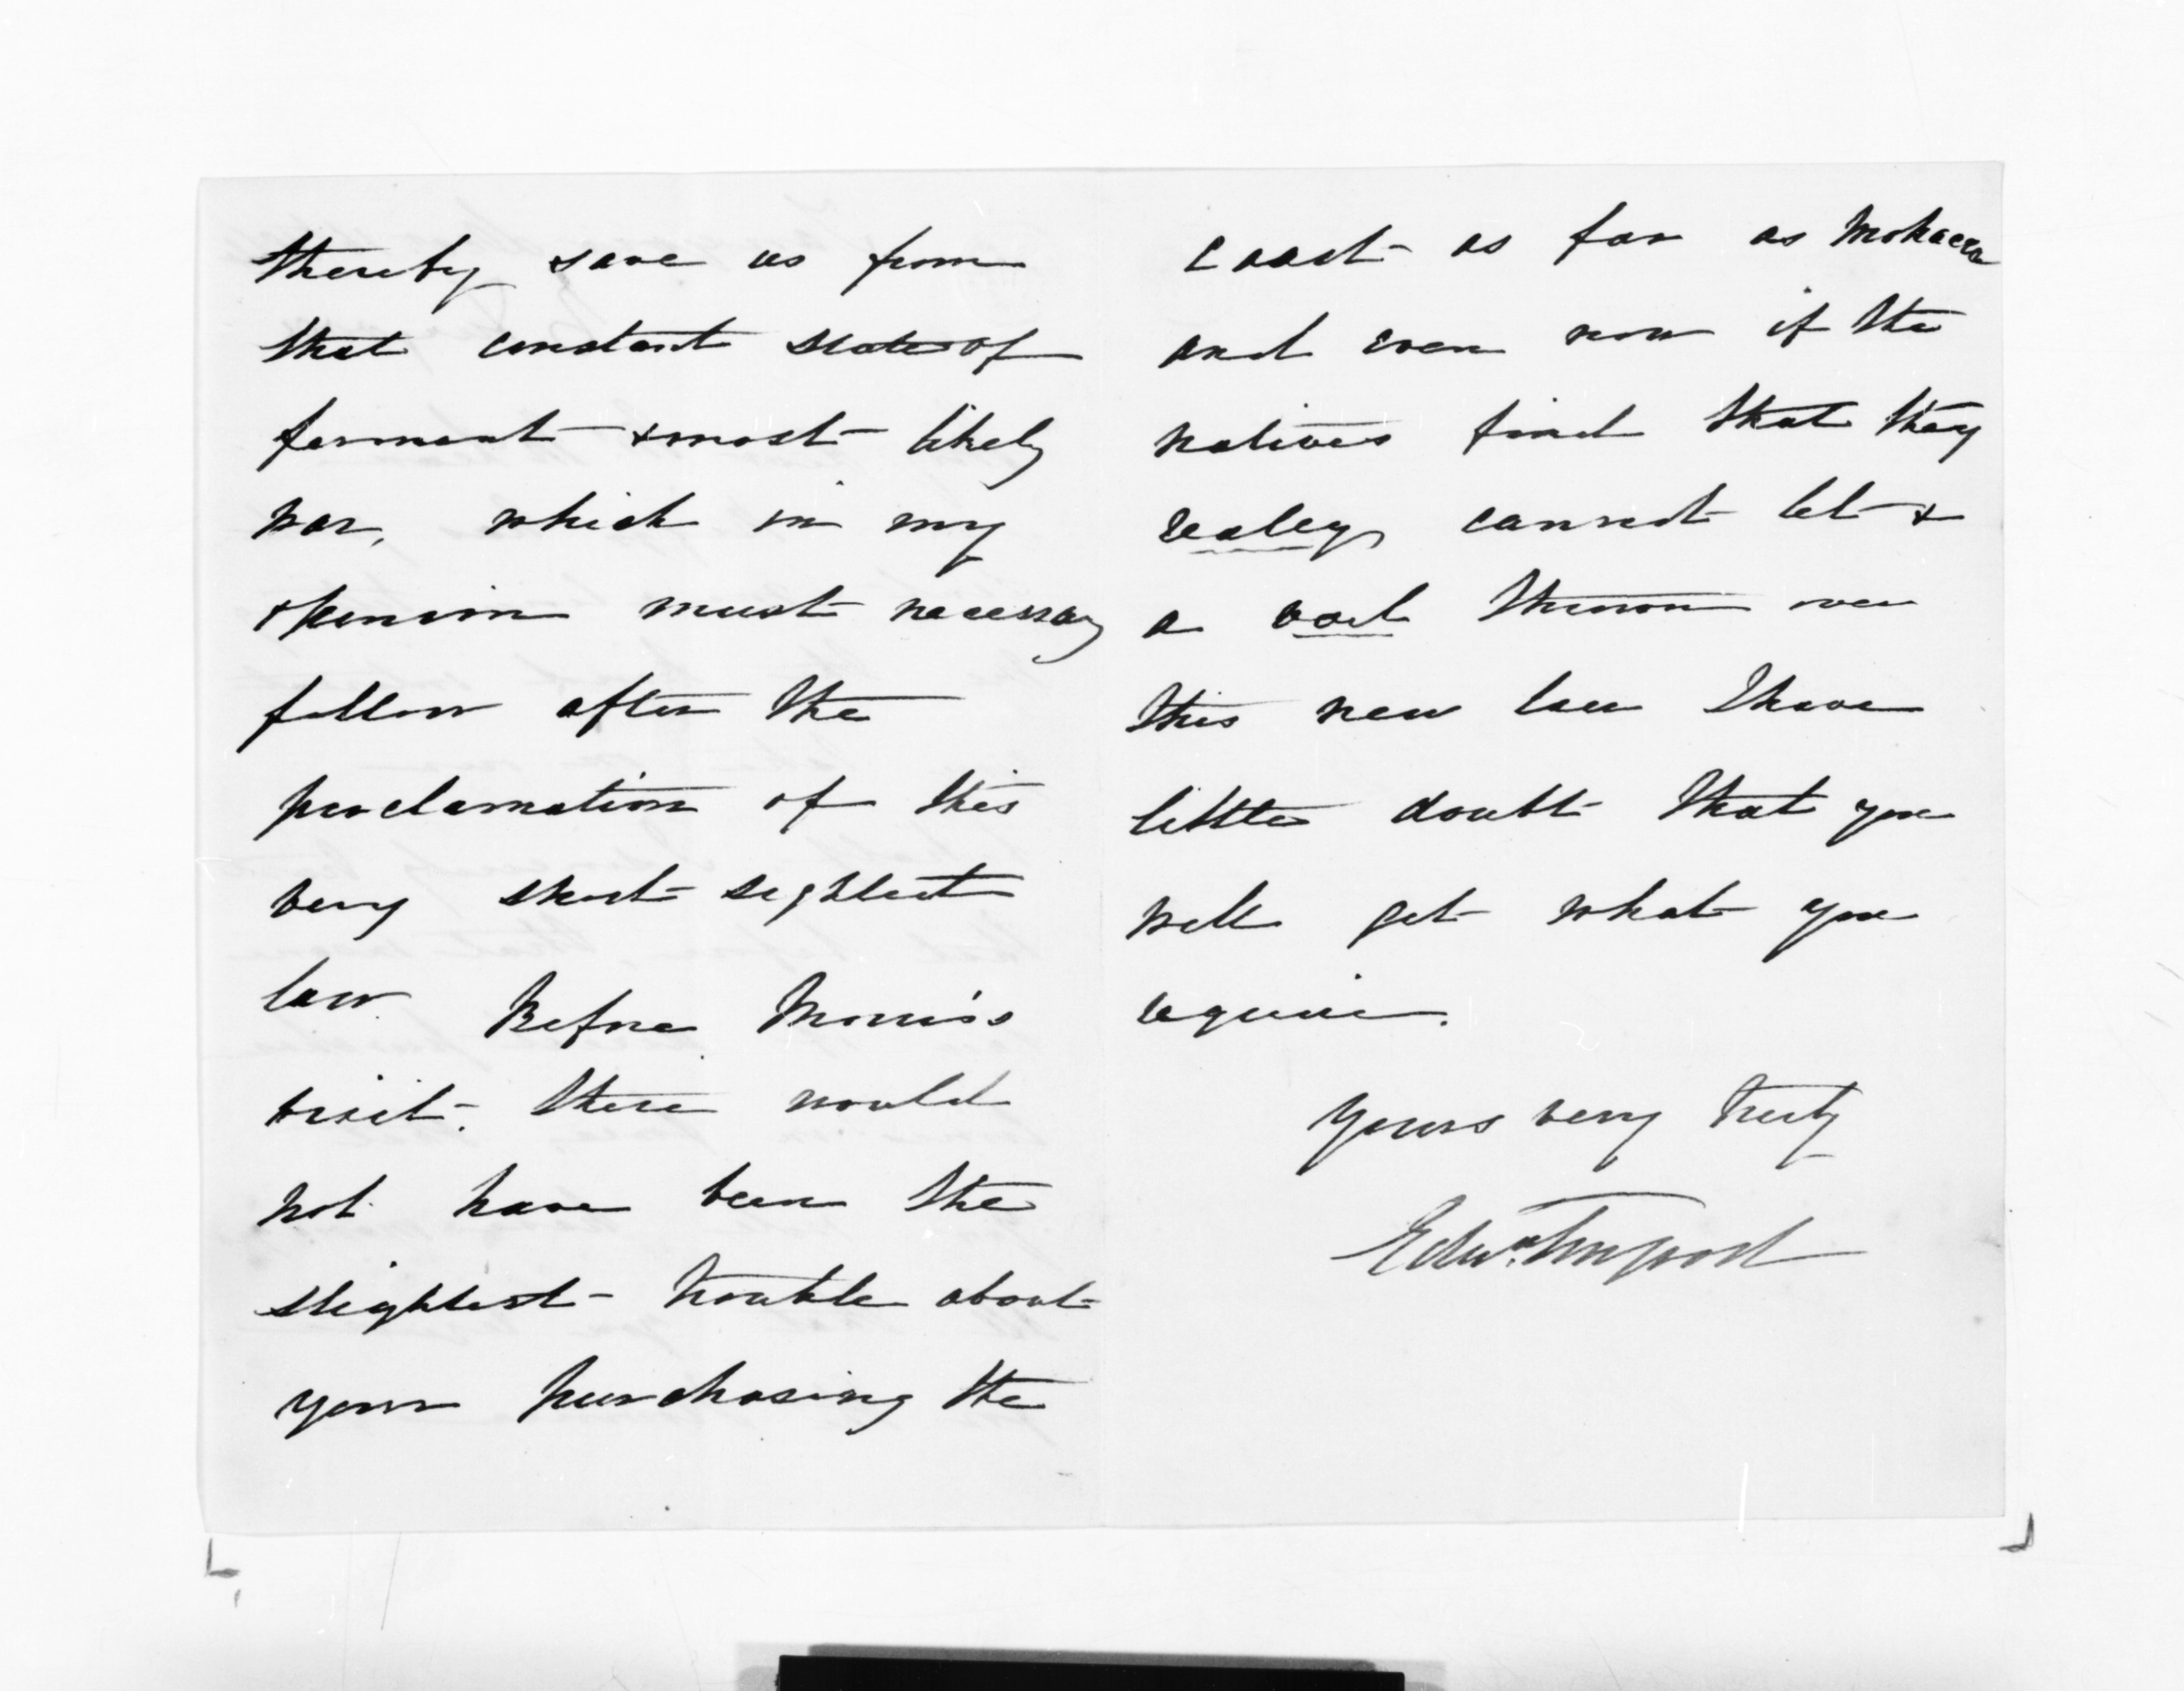 thereby save us from
that constant state of
ferment & most likely
war, which in my
opinion must necessary
follow after the
proclamation of this
very short sighted
law. Before Morris's
visit. there would
not have been the
slightest trouble about
your purchasing the
coast as far as Mohaka
and even now if the
natives find that they
realey cannot let &
a veil thrown over
this new law I have
little doubt that you
will get what you
require.
Yours very truly
Edwd.